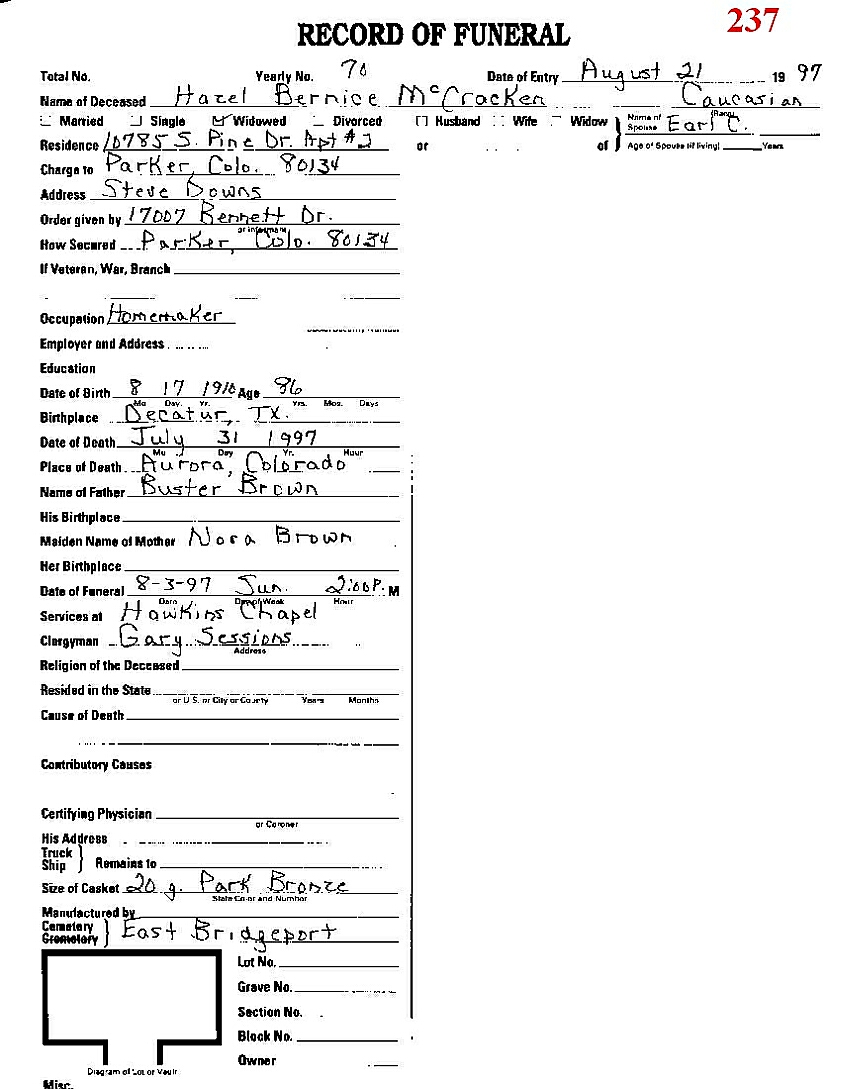 237
RECORD OF FUNERAL
Total No. Yearly No. 70 Date of Entry August 21 19 97
Name of Deceased Hazel Bernice McCracken Caucasian
(Race)
Married Single Widowed Divorced Husband Wife Widow Name of Spouse Earl C.
Residence 10785 S. Pine Dr. Apt #2 or of Age of Spouse (if living) Years
Charge to Parker, Colo. 80134
Address Steve Downs
Order given by 17007 Bennett Dr.
or informant
How Secured Parker, Colo. 80134
If Veteran, War, Branch
Occupation Homemaker
Social Security Number
Employer and Address
Education
Date of Birth 8 17 1910 Age 86
Mo Day. Yr. Yrs. Mos. Days
Birthplace Decatur, TX.
Date of Death July 31 1997
Mo Day Yr. Hour
Place of Death Aurora, Colorado
Name of Father Buster Brown
His Birthplace
Maiden Name of Mother Nora Brown
Her Birthplace
Date of Funeral 8-3-97 Sun. 2:00 P. M
Date Day of Week Hour
Services at Hawkins Chapel
Clergyman Gary Sessions
Address
Religion of the Deceased
Resided in the State
or U.S. or City or County Years Months
Cause of Death
Contributory Causes
Certifying Physician
or Coroner
His Address
Truck
Ship } Remains to
Size of Casket 20 g. Park Bronze
State Color and Number
Manufactured by
Cemetery
Crematory } East Bridgeport
Lot No.
Grave No.
Section No.
Block No.
Owner
Diagram of Lot or Vault
Misc.